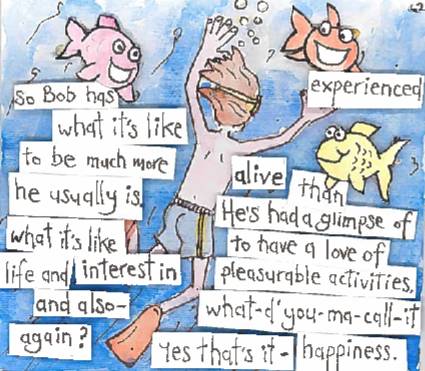 So Bob has
experienced
what it's like
to be much more
alive than
he usually is.
He's had a glimpse of
what it's like
to have a love of
life and interest in
pleasurable activities,
and also-
what-d'you-ma-call-it
again?
Yes that's it - happiness.